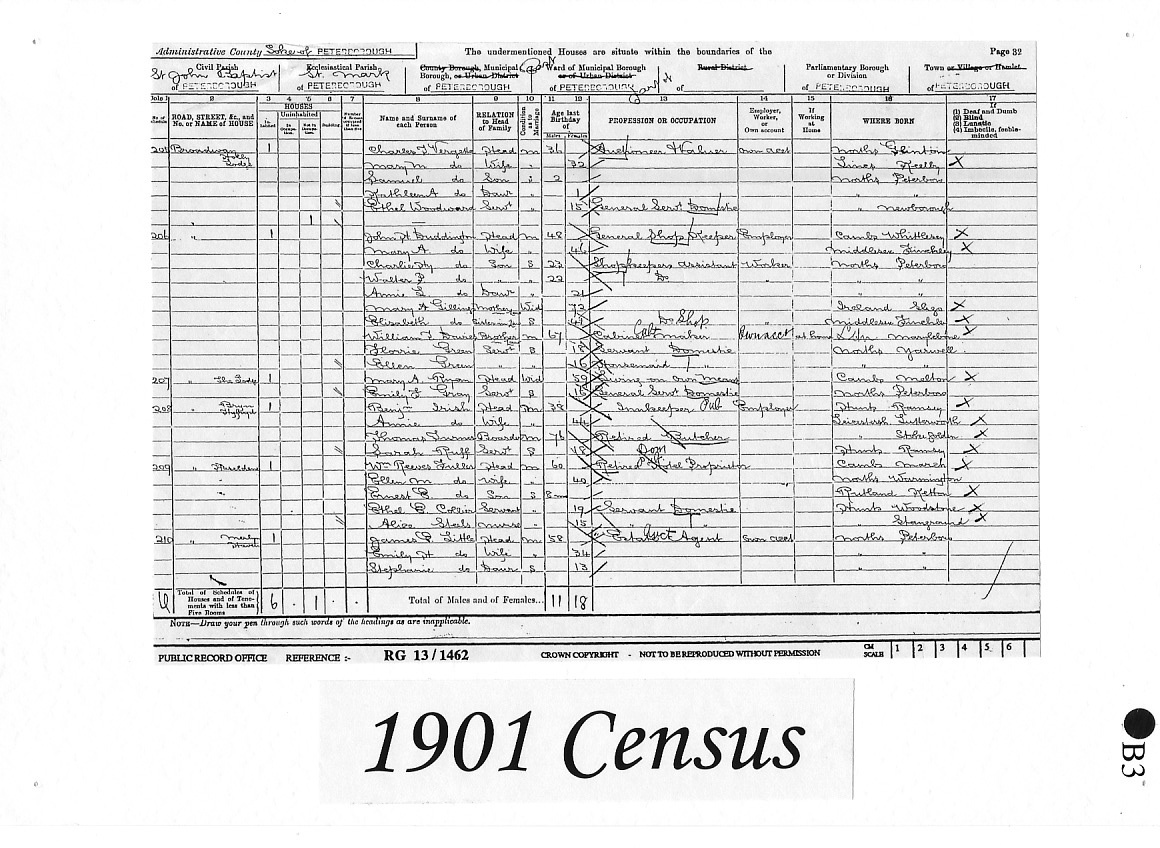 Administrative County Soke of PETERBOROUGH The undermentioned Houses are situate within the boundaries of the Page 32
Civil Parish Ecclesiastical Parish County Borough, Municipal Ward of Municipal Borough Rural District Parliamentary Borough Town or Village or Hamlet
St John Baptist St. Mark Borough, or Urban District or of Urban District or Division
of PETERBOROUGH of PETERBOROUGH of PETERBOROUGH of PETERBOROUGH of of PETERBOROUGH of PETERBOROUGH
1 2 3 4 5 6 7 8 9 10 11 12 13 14 15 16 17
No. of Schedule ROAD, STREET, &c., and No. or NAME of HOUSE HOUSES Inhabited Uninhabited In Occupation Not in Occupation Building Name and Surname of each Person RELATION to Head of Family Condition as to Marriage Age last Birthday of Males Females PROFESSION OR OCCUPATION Employer, Worker, or Own account If Working at Home WHERE BORN If (1) Deaf and Dumb (2) Blind (3) Lunatic (4) Imbecile, feeble-minded
205 Broadway 1 Charles F Vergette Head M 36 Auctioneer & Valuer own acct Norths Glinton
Mary M do Wife " 32 Lincs
Samuel do Son " 2 Norths Peterboro
Kathleen A do Daur 1 " "
Ethel Woodward Servt " 15 General Servt Domestic " Newborough
" 1
206 " 1 John H Duddington Head M 48 General Shop Keeper Employer Cambs Whittlesey
Mary A. do Wife " 46 Middlesex Finchley
Charlie Hy do Son S 23 Shopkeepers assistant Worker Norths Peterboro
Walter P do " " 22 Do " " "
Annie L do Daur " 21 " "
Mary A Gilling Mother Wid 72 Ireland Sligo
Elizabeth do Sister in L S 41 Do Shop " Middlesex Finchley
William J Davies Brother M 67 Cabinet Maker Own acct at home Marylebone
Florrie Green Servt S 18 Servant Domestic Norths Yarwell
Ellen Green " " 16 Housemaid " "
207 " The Lodge 1 Mary A. Ryan Head Wid 59 Living on own Means Cambs
Emily E Gray Servt S 15 General Servt Domestic Norths Peterboro
208 " 1 Benj. Irish Head M 38 Innkeeper Pub Employer Hunts Ramsey
Annie do Wife " 44 Leicestersh Lutterworth
Thomas Turner Boarder M 76 Retired Butcher "
Sarah Ruff Servt S 18 Dom Hunts Ramsey
209 " 1 Wm Reeves Fuller Head M 60 Retired Hotel Proprietor Cambs March
Ellen M. do Wife " 40 Norths Warmington
Ernest do Son S 8m Rutland Ketton
Ethel Collier Servant " 19 Servant Domestic Hunts Woodstone
Alice Nurse " 15 " " " Stanground
210 " 1 James P Little Head M 58 Estate Agent own acct Norths Peterboro
Emily H do Wife " 34 " "
Stephanie do Daur S 13 " "
Total of Schedules of Houses and of Tenements with less than Five Rooms 6 . 1 . . Total of Males and of Females... 11 18
NOTE—Draw your pen through such words of the headings as are inapplicable.
PUBLIC RECORD OFFICE REFERENCE :- RG 13/1462 CROWN COPYRIGHT - NOT TO BE REPRODUCED WITHOUT PERMISSION CM SCALE 1 2 3 4 5 6
1901 Census
B3